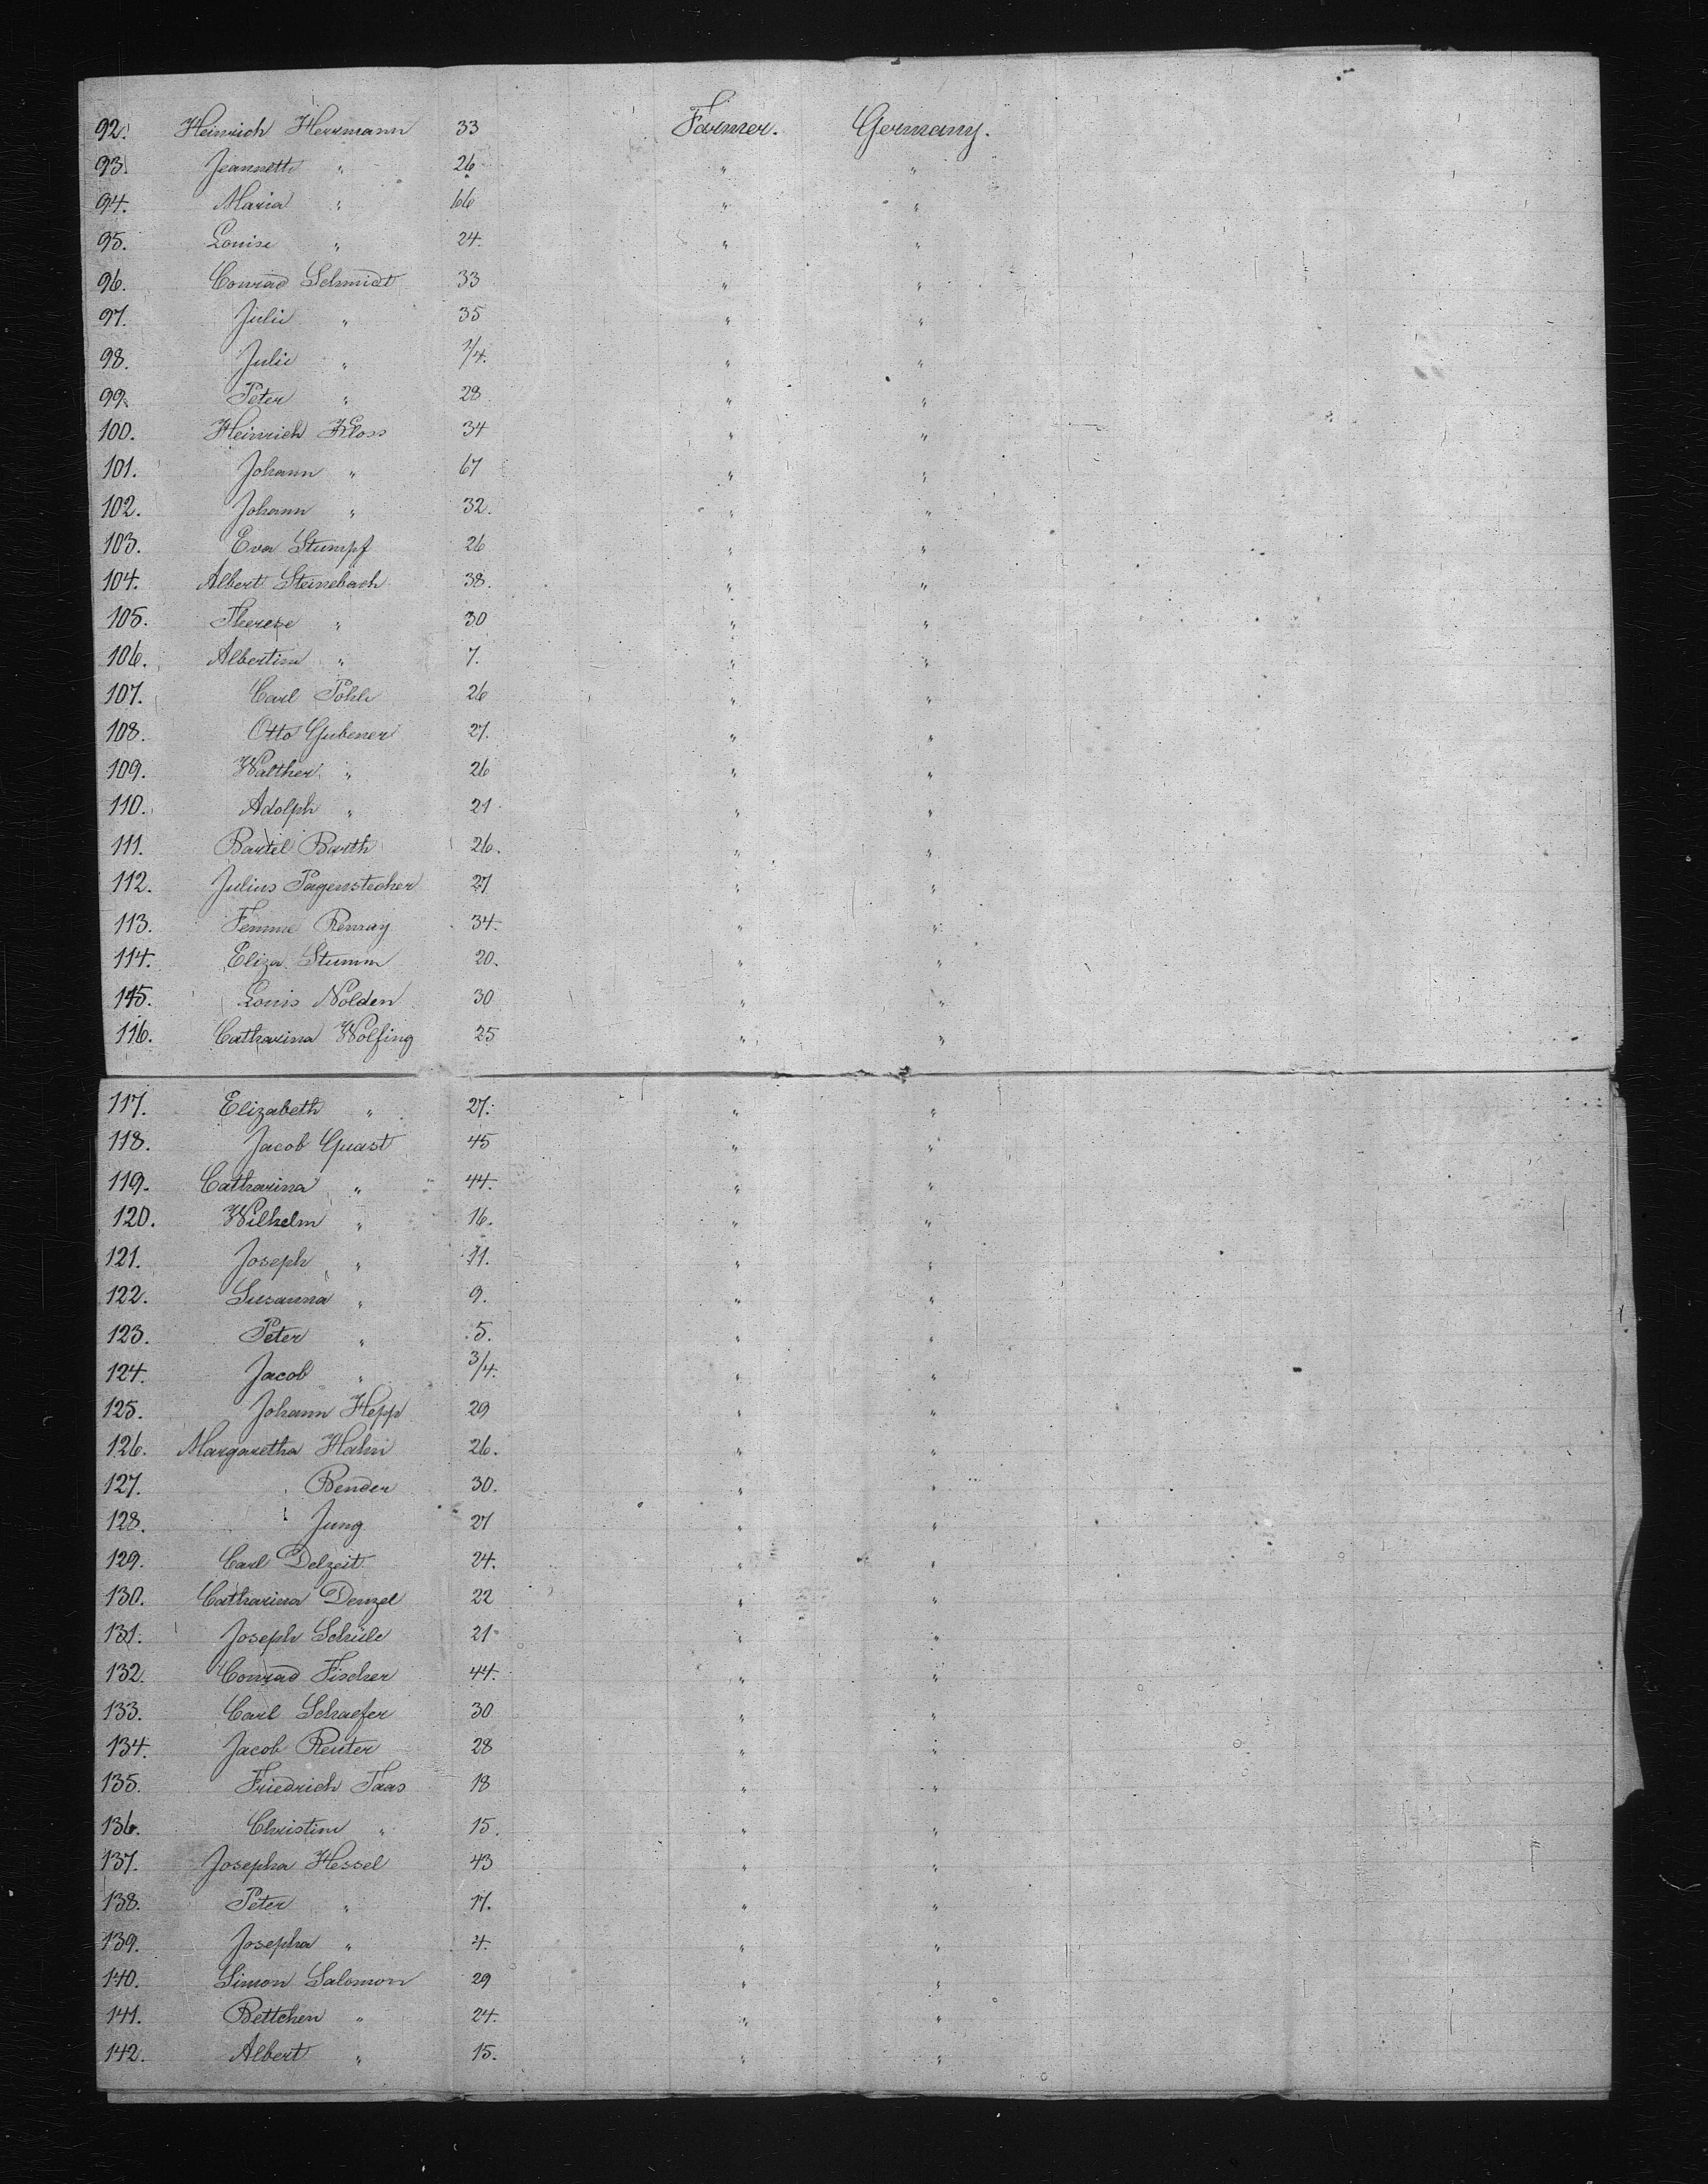 92. Heinrich Herrmann 33 Farmer. Germany.
93. Jeanneth " 26 " "
94. Maria " 66 " "
95. Louise " 24. " "
96. Conrad Schmidt 33 " "
97. Julie " 35 " "
98. Julie " 1/4. " "
99. Peter " 28 " "
100. Heinrich Kloss 34 " "
101. Johann " 67 " "
102. Johann " 32. " "
103. Eva Stumpf 26 " "
104. Albert Steinebach 38. " "
105. Therese " 30 " "
106. Albertine " 7. " "
107. Carl Pohle 26 " "
108. Otto Gubener 27. " "
109. Walther " 26 " "
110. Adolph " 21 " "
111. Bartel Barth 26. " "
112. Julius Pagenstecher 27 " "
113. Femme Renray 34. " "
114. Eliza Stumm 20. " "
115. Louis Nolden 30 " "
116. Catharina Wolfing 25 " "
117. Elizabeth " 27. " "
118. Jacob Quast 45 " "
119. Catharina " 44. " "
120. Wilhelm " 16. " "
121. Joseph " 11. " "
122. Susanna " 9. " "
123. Peter " 5. " "
124. Jacob " 3/4. " "
125. Johann Hepp 29 " "
126. Margaretha Hahn 26. " "
127. Bender 30. " "
128. Jung 27 " "
129. Carl Delzeit 24. " "
130. Catharina Denzel 22 " "
131. Joseph Schüle 21 " "
132. Conrad Fischer 44. " "
133. Carl Schaefer 30 " "
134. Jacob Reuter 28 " "
135. Friedrich Taas 18 " "
136. Christine " 15. " "
137. Josepha Hessel 43 " "
138. Peter " 17. " "
139. Josepha " 4. " "
140. Simon Salomon 29 " "
141. Bettchen " 24. " "
142. Albert " 15. " "